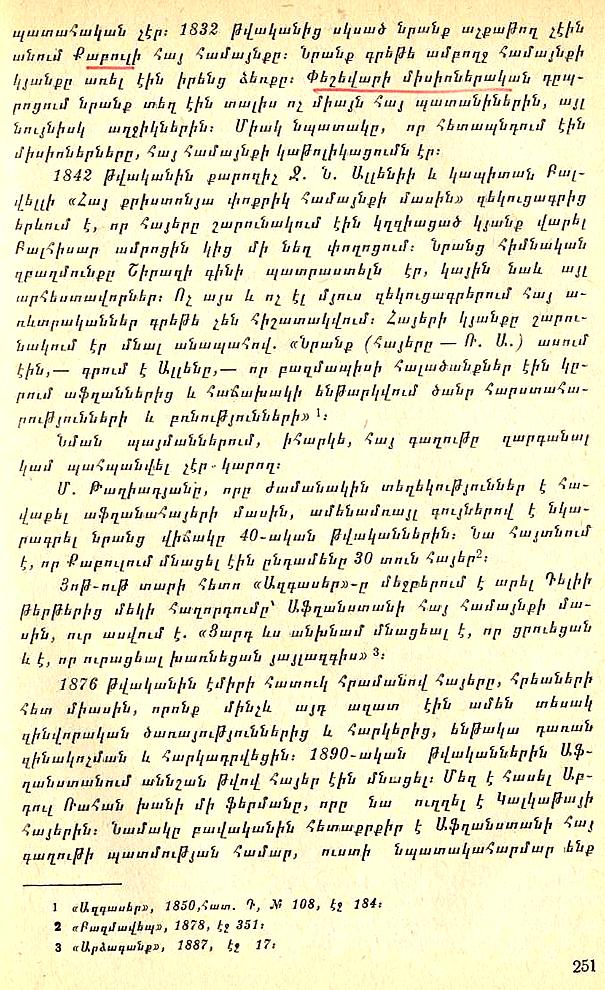 պատահական չէր։ 1832 թվականից սկսած նրանք աչքաթող չէին
անում Քաբուլի հայ համայնքը։ Նրանք գրեթե ամբողջ համայնքի
կյանքը առել էին իրենց ձեռքը։ Փեշեվարի միսիոներական դըպ-
րոցում նրանք տեղ էին տալիս ոչ միայն հայ պատանիներին, այլ
նույնիսկ աղջիկներին։ Միակ նպատակը, որ հետապնդում էին
միսիոներները, հայ համայնքի կաթոլիկացումն էր։
1842 թվականին քարոզիչ Ջ. Ն. Ալլենիի և կապիտան Բալ-
վելլի «Հայ քրիստոնյա փոքրիկ համայնքի մասին» զեկուցագրից
երևում է, որ հայերը շարունակում էին կղզիացած կյանք վարել
Բալհիսար ամրոցին կից մի նեղ փողոցում։ Նրանց հիմնական
զբաղմունքը Շիրազի գինի պատրաստելն էր, կային նաև այլ
արհեստավորներ։ Ոչ այս և ոչ էլ մյուս զեկուցագրերում հայ ա-
ռևտրականներ գրեթե չեն հիշատակվում։ Հայերի կյանքը շարու-
նակում էր մնալ անապահով. «Նրանք (հայերը — Ռ. Ա.) ասում
էին,— գրում է Ալլենը,— որ բազմապիսի հալածանքներ էին կը-
րում աֆղաններից և հաճախակի ենթարկվում ծանր հարստահա-
րությունների և բռնությունների» ¹։
Նման պայմաններում, իհարկե, հայ գաղութը զարգանալ
կամ պահպանվել չէր կարող։
Մ. Թաղիադյանը, որը ժամանակին տեղեկություններ է հա-
վաքել աֆղանահայերի մասին, ամենամռայլ գույներով է նկա-
րագրել նրանց վիճակը 40-ական թվականներին։ Նա հայտնում
է, որ Քաբուլում մնացել էին ընդամենը 30 տուն հայեր²։
Յոթ-ութ տարի հետո «Ազգասեր»-ը մեջբերում է արել Դելիի
թերթերից մեկի հաղորդումը՝ Աֆղանստանի հայ համայնքի մա-
սին, ուր ասվում է. «Ցարդ ևս անխնամ մնացեալ է, որ ցրուեցան
և է, որ ուրացեալ խառնեցան յայլազգիս» ³։
1876 թվականին էմիրի հատուկ հրամանով հայերը, հրեաների
հետ միասին, որոնք մինչև այդ ազատ էին ամեն տեսակ
զինվորական ծառայություններից և հարկերից, ենթակա դառան
զինակոչման և հարկադրվեցին։ 1890-ական թվականներին Աֆ-
ղանստանում աննշան թվով հայեր էին մնացել։ Մեզ է հասել Աբ-
դուլ Ռահան խանի մի ֆերմանը, որը նա ուղղել է Կալկաթայի
հայերին։ Նամակը բավականին հետաքրքիր է Աֆղանստանի հայ
գաղութի պատմության համար, ուստի նպատակահարմար ենք
1 «Ազգասեր», 1850, հատ. Դ, № 108, էջ 184։
2 «Բազմավեպ», 1878, էջ 351։
3 «Արձագանք», 1887, էջ 17։
251